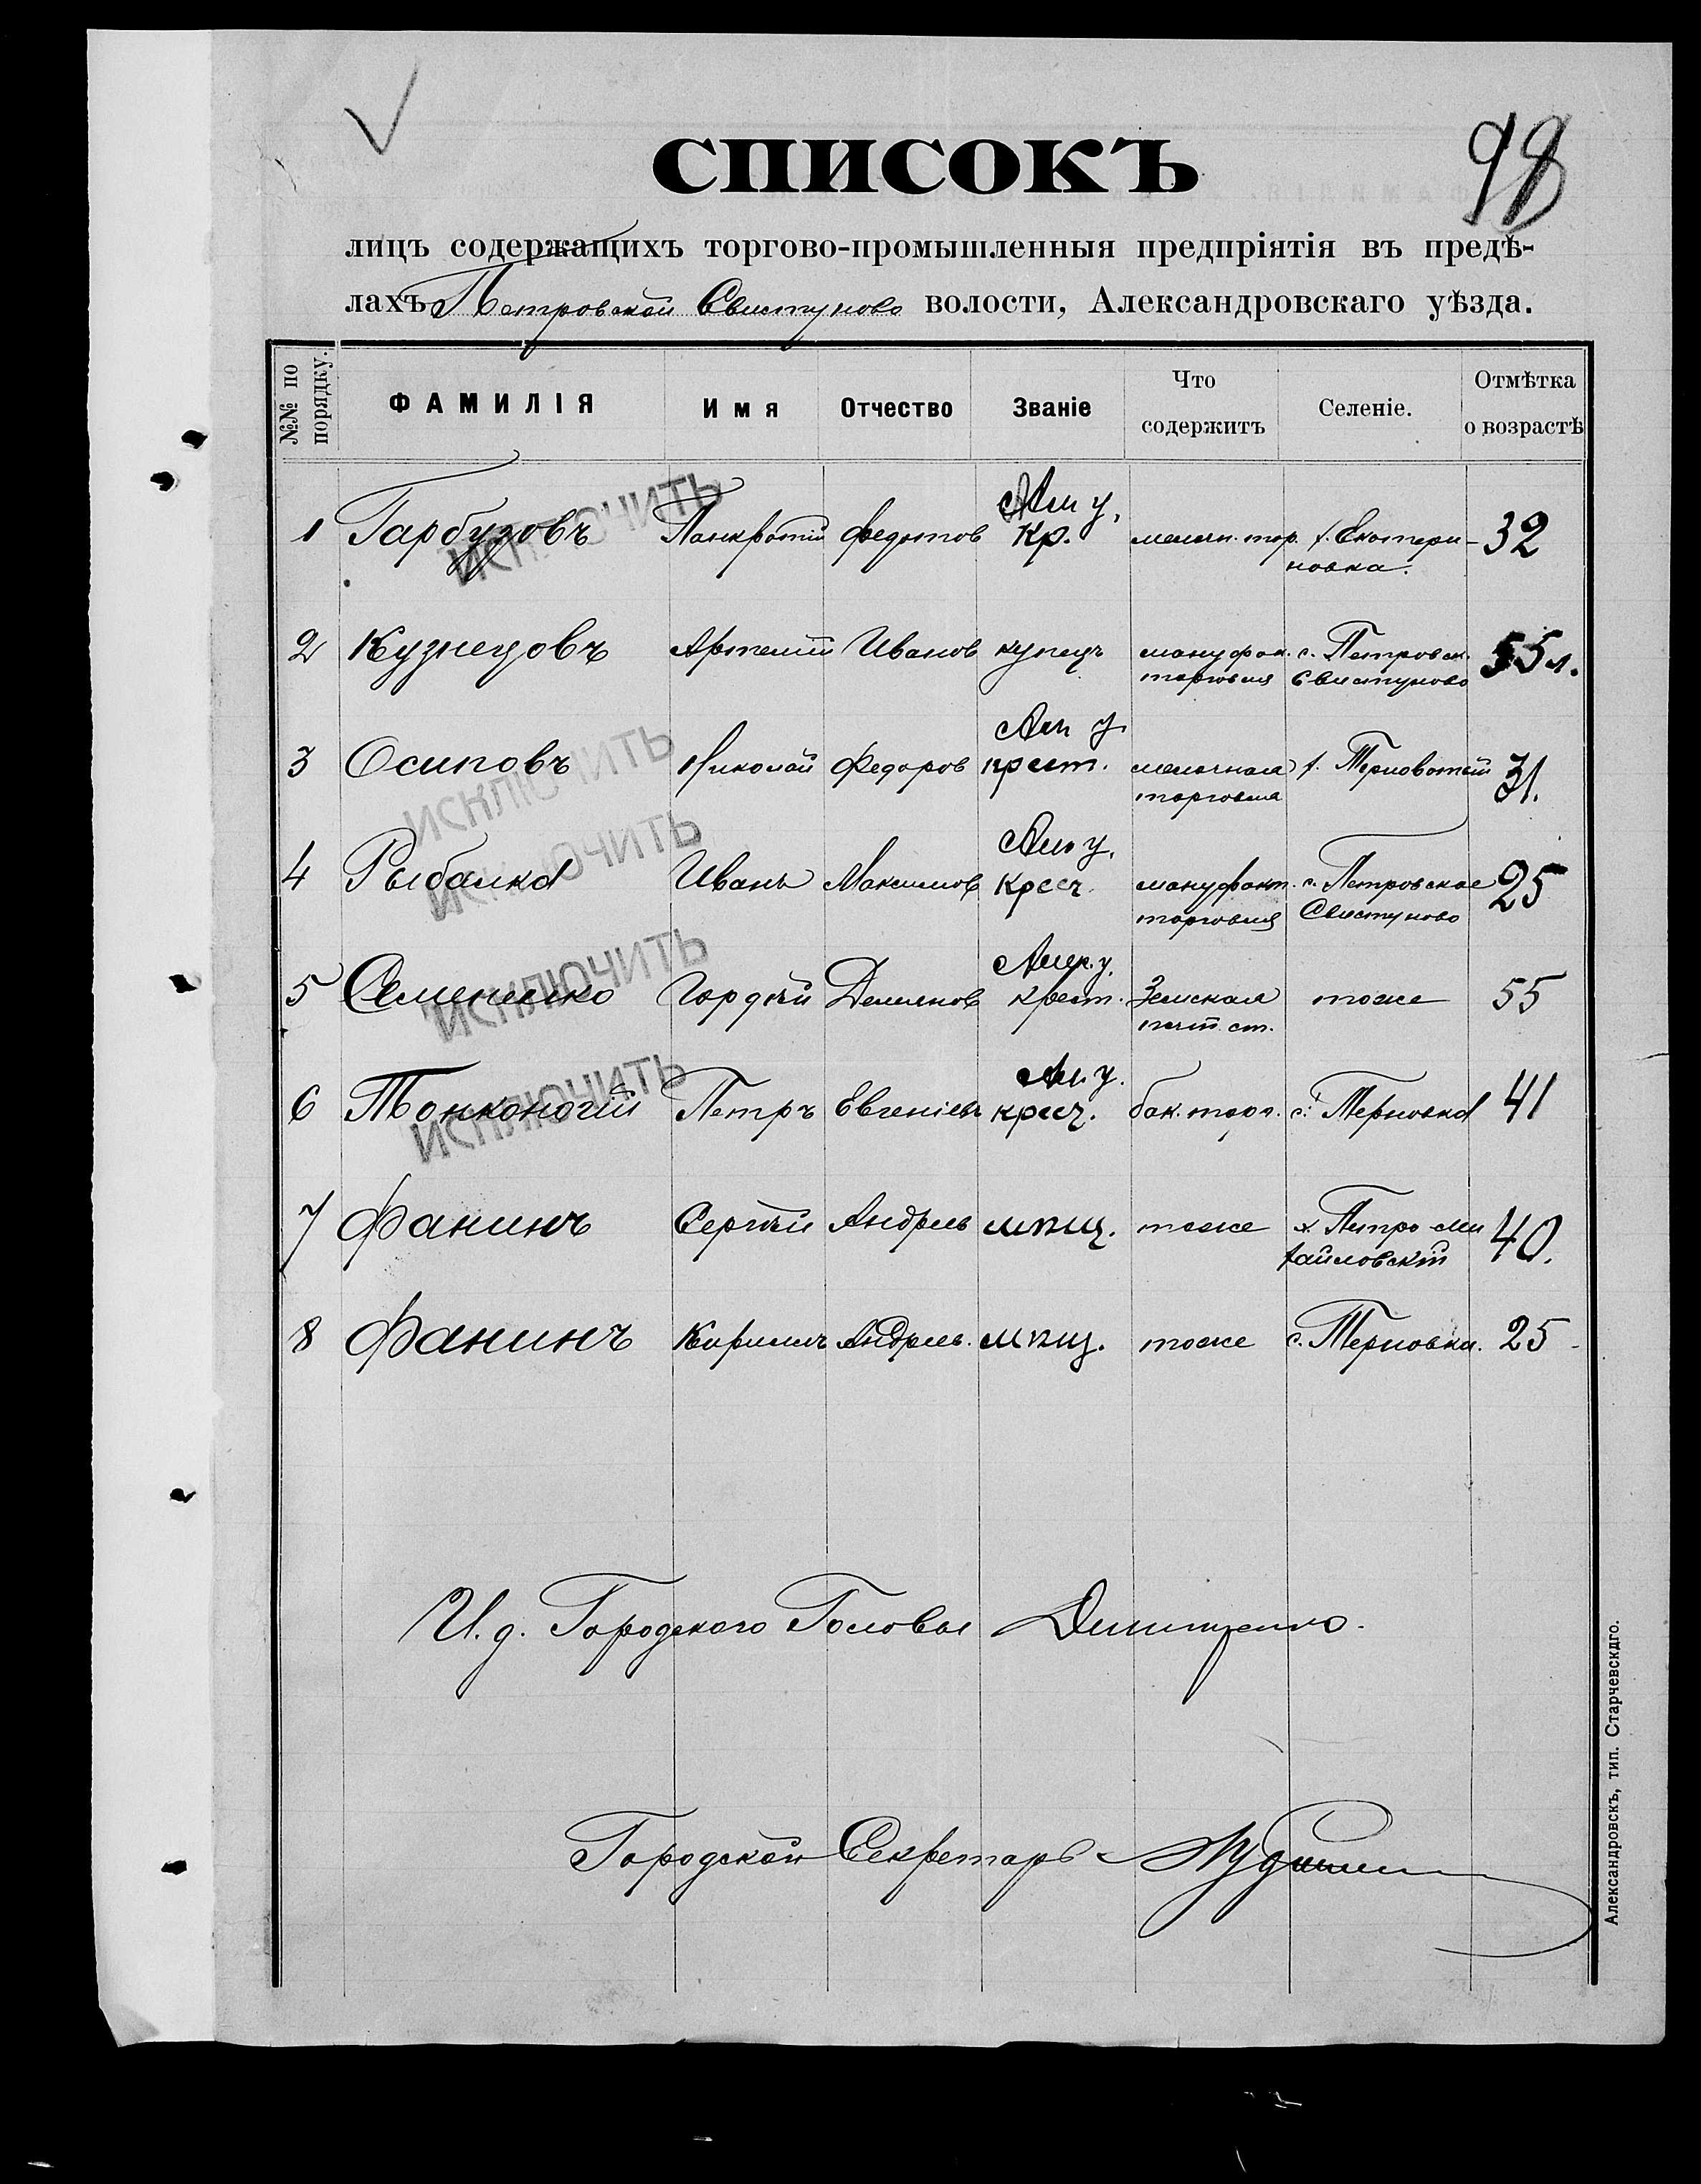 98
СПИСОКЪ
лицъ содержащихъ торгово-промышленныя предпріятія въ предѣ-
лахъ Петровской Свистуново волости, Александровскаго уѣзда.
№№ по порядку. ФАМИЛІЯ Имя Отчество Званіе Что содержитъ Селеніе. Отмѣтка о возрастѣ
ИСКЛЮЧИТЬ
1 Гарбузовъ Панкратій Федотов Кр. мелочн. тор. х. Екатери- 32
новка.
2 Кузнецовъ Артемій Иванов купецъ мануфак. с. Петровск. 55 л.
торговля Свистуново
ИСКЛЮЧИТЬ
3 Осиповъ Николай Федоров крест. мелочная х. Терноватый 31.
торговля
ИСКЛЮЧИТЬ
4 Рыбалка Иванъ Максимов крест. мануфакт. с. Петровское 25
торговля Свистуново
ИСКЛЮЧИТЬ
5 Семененко Гордѣй Демьянов крест. Земская тоже 55
почт. ст.
ИСКЛЮЧИТЬ
6 Тонконогій Петръ Евгеніев крест. бак. торг. с. Терновка 41
7 Фанинъ Сергѣй Андреев мѣщ. тоже х. Петро-Ми 40.
хайловскій
8 Фанинъ Кириллъ Андреев. мѣщ. тоже с. Терновка. 25
И. д. Городского Головы
Городской Секретарь
Александровскъ, тип. Старчевскдго.